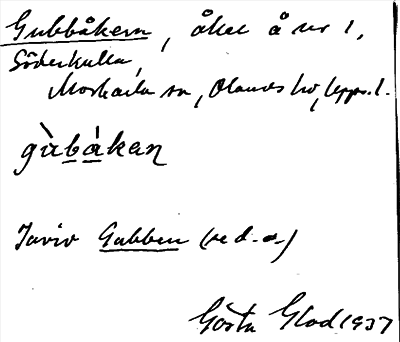 Gubbåkern, åker å nr 1,
Söderkulla,
Morkarla sn, Olands hd, Upps. l.
gùbåkaɳ
Javio Gubben (se d. o.)
Gösta Glad 1937